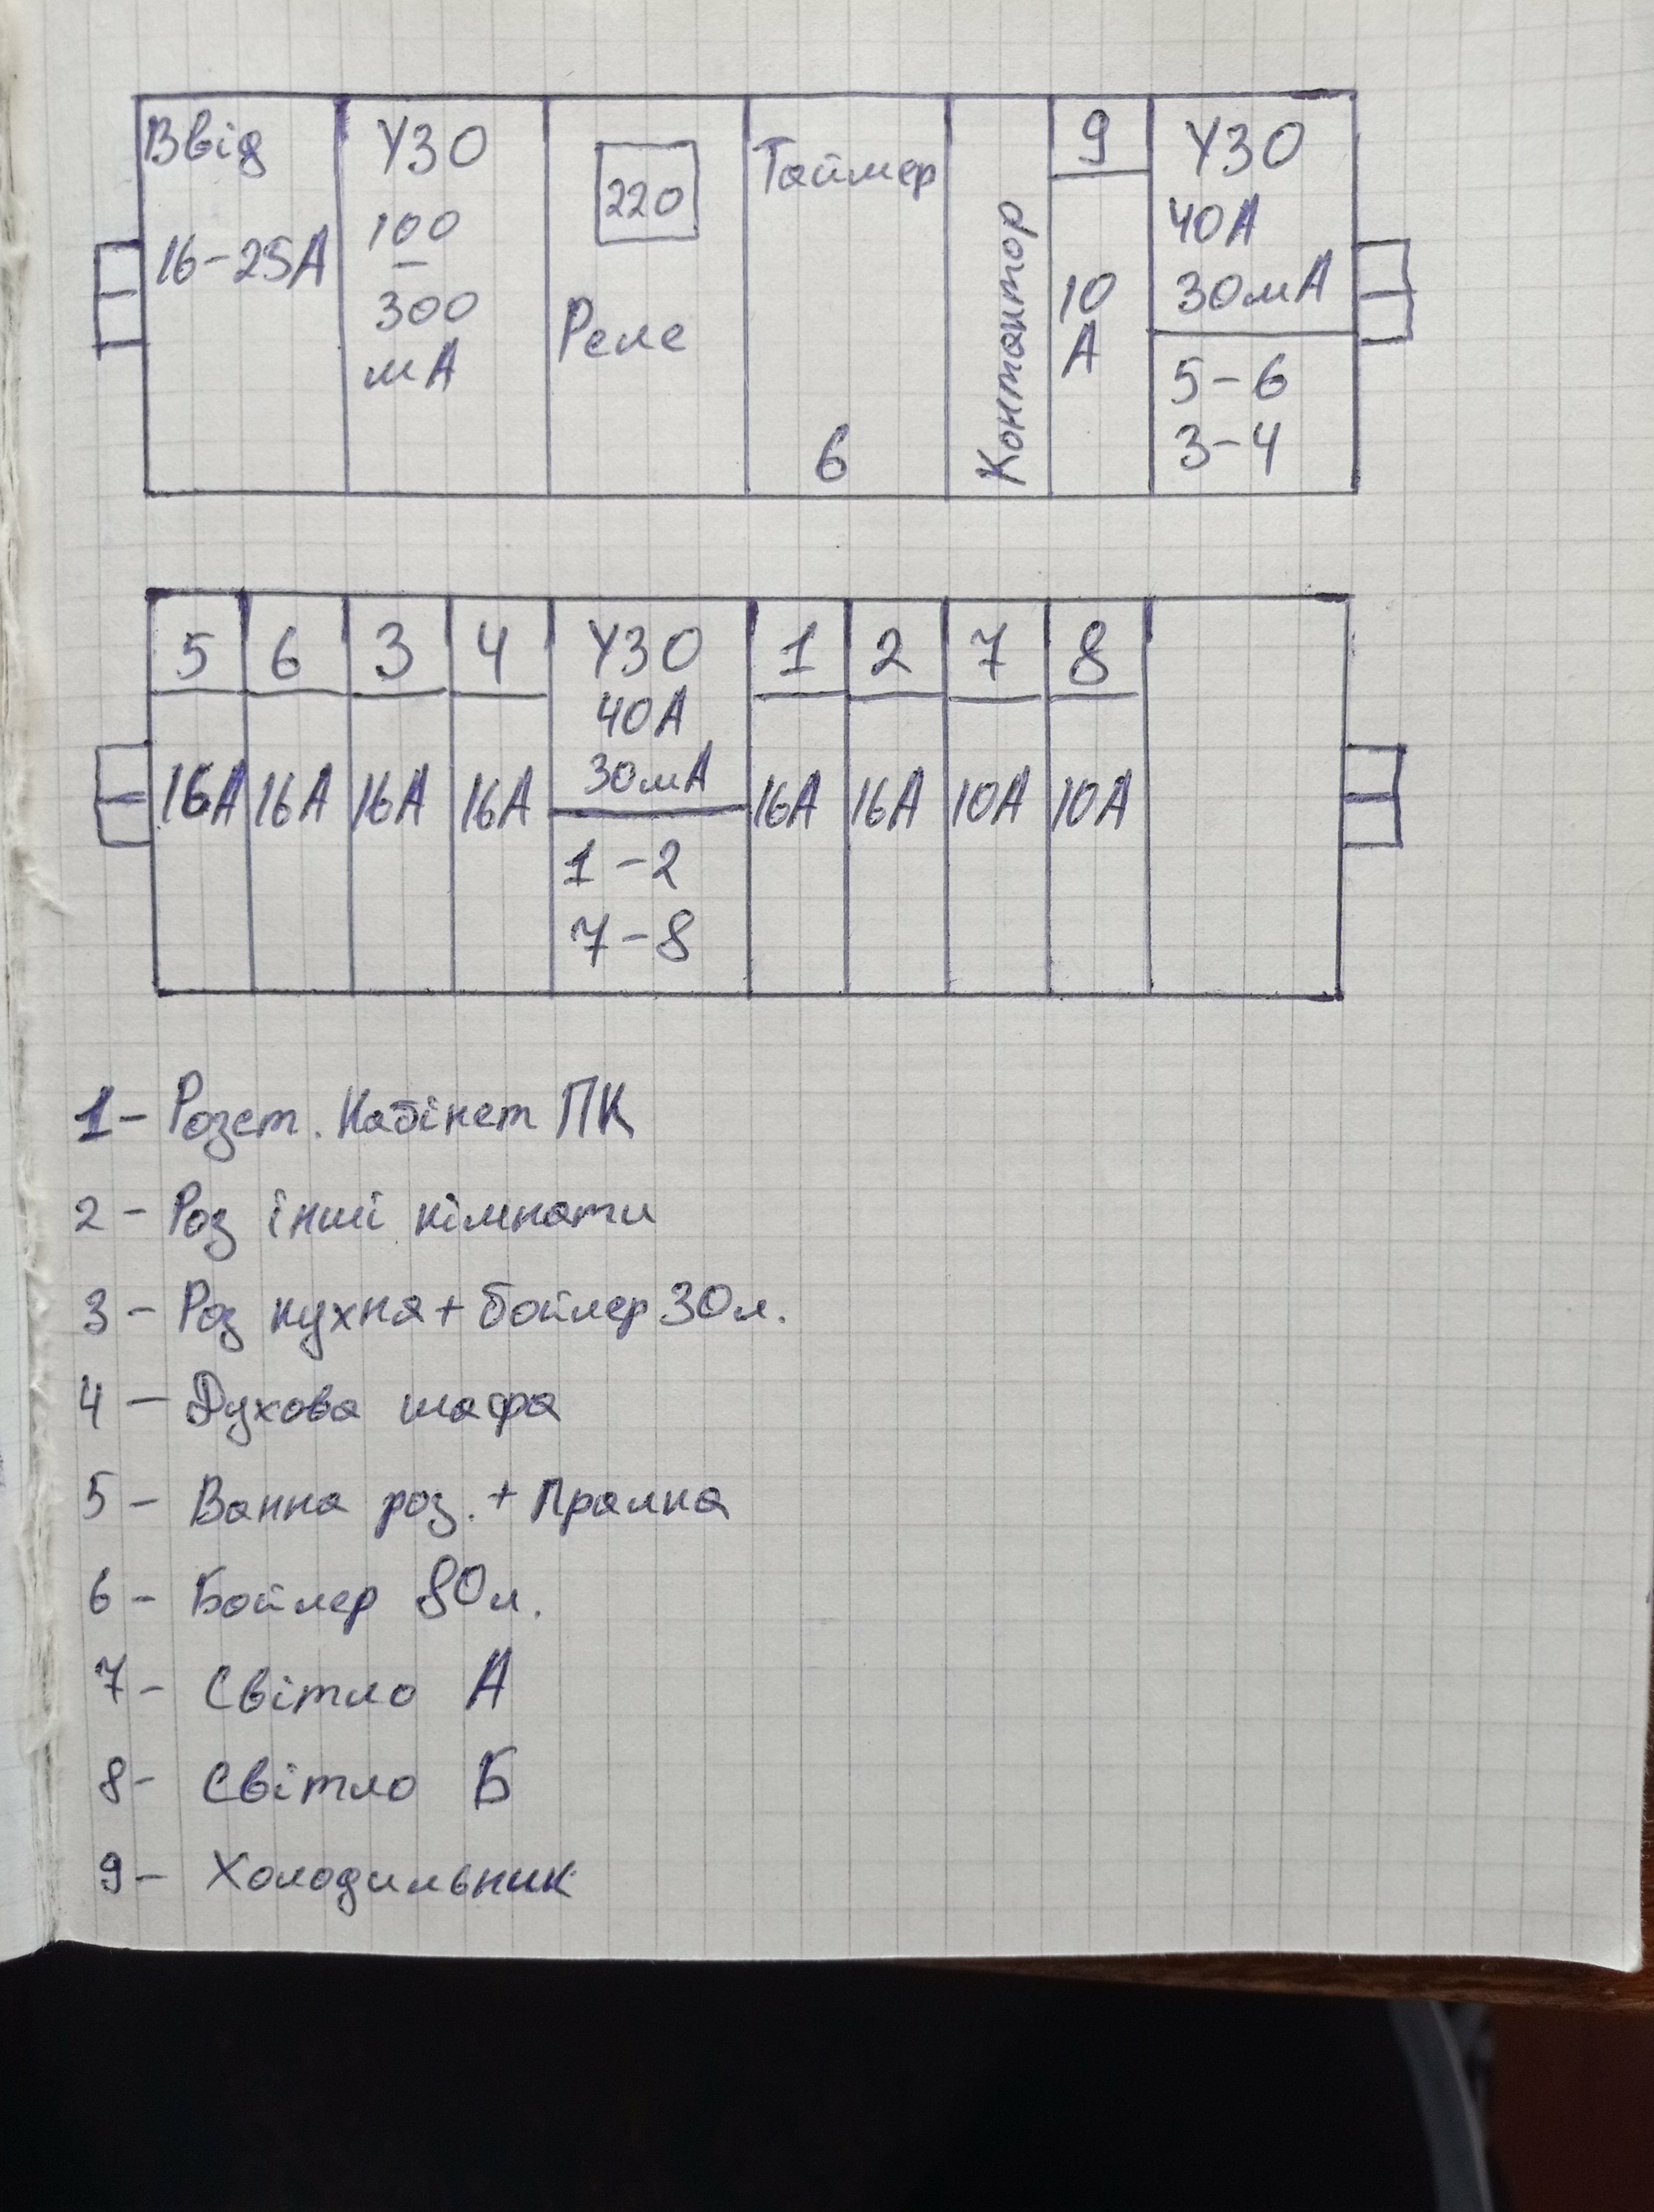 Ввід
16-25А
УЗО
100
—
300
мА
220
Реле
Таймер
6
Контактор
9
10
А
УЗО
40А
30мА
5-6
3-4
5
16А
6
16А
3
16А
4
16А
УЗО
40А
30мА
1-2
7-8
1
16А
2
16А
7
10А
8
10А
1- Розет. Кабінет ПК
2- Роз інші кімнати
3- Роз кухня + бойлер 30л.
4- Духова шафа
5- Ванна роз. + Пралка
6- Бойлер 80л.
7- Світло А
8- Світло Б
9- Холодильник